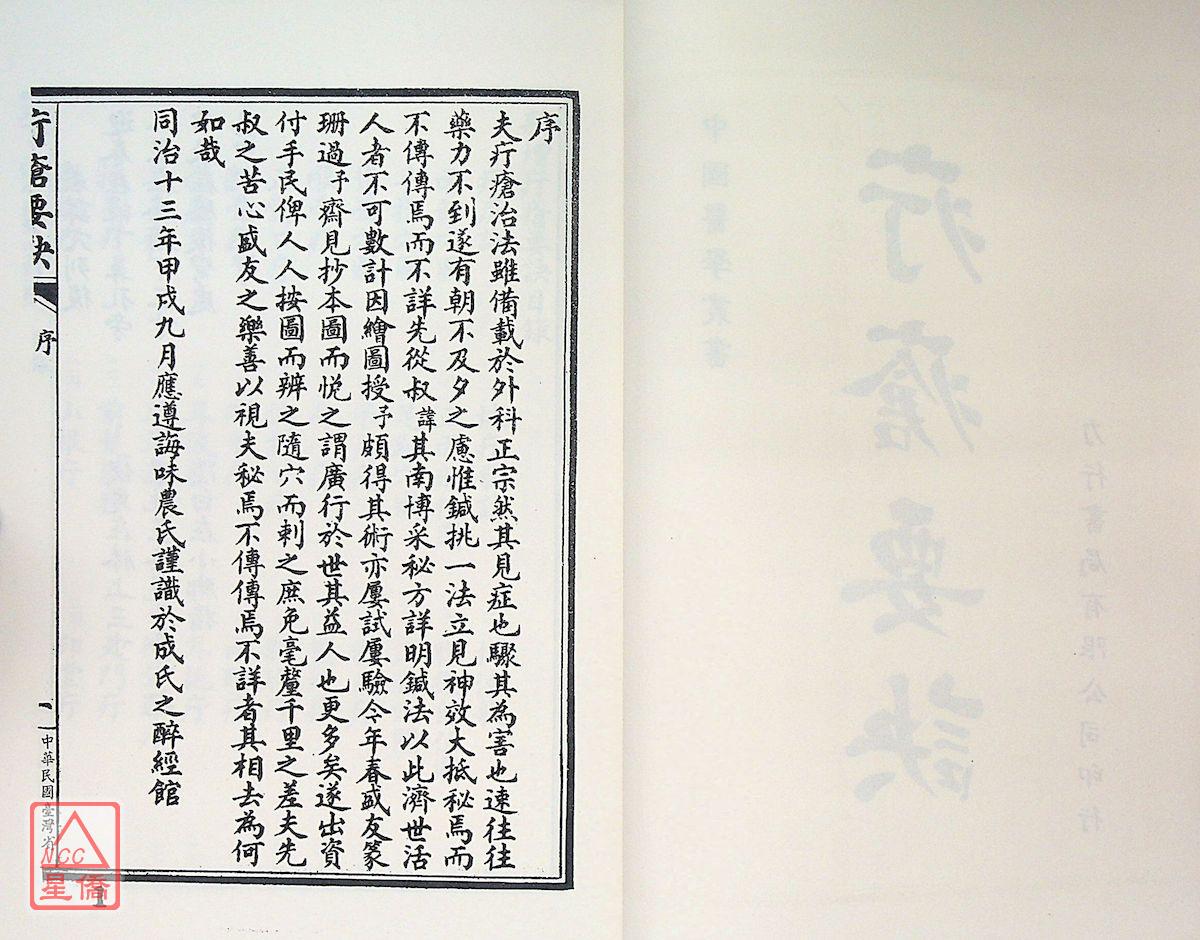 序
夫疔瘡治法雖備載於外科正宗然其見症也驟其為害也速往往
藥力不到遂有朝不及夕之慮惟鍼挑一法立見神效大抵秘焉而
不傳傳焉而不詳先從叔諱其南博采秘方詳明鍼法以此濟世活
人者不可數計因繪圖授予頗得其術亦屢試屢驗今年春戚友篆
珊過予齋見抄本圖而悅之謂廣行於世其益人也更多矣遂出資
付手民俾人人按圖而辨之隨穴而刺之庶免毫釐千里之差夫先
叔之苦心戚友之樂善以視夫秘焉不傳傳焉不詳者其相去為何
如哉
同治十三年甲戌九月應遵誨味農氏謹識於成氏之醉經館
疔瘡要訣
序
一
中華民國臺灣省
1
NCC
星僑
中國醫學叢書
疔瘡要訣
力行書局有限公司印行